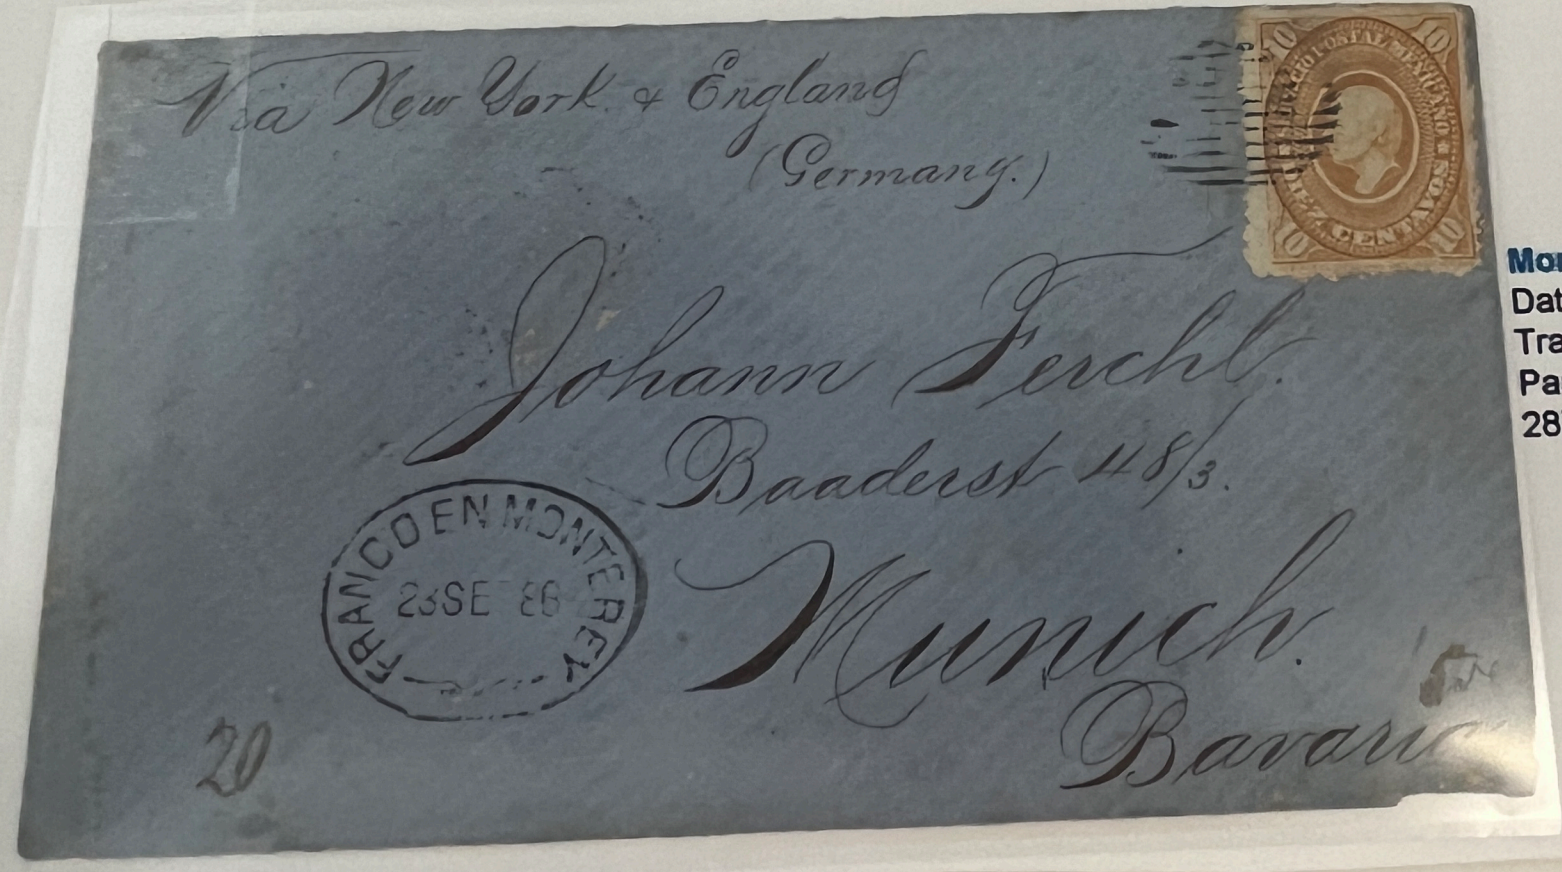 Via New York & England
(Germany.)
10 10
SERVICIO POSTAL MEXICANO
DIEZ CENTAVOS
10 10
Johann Ferchl.
Baaderst 48/3.
Munich.
Bavaria
FRANCO EN MONTEREY
23 SE 86
20
Mon
Dat
Tra
Pa
28